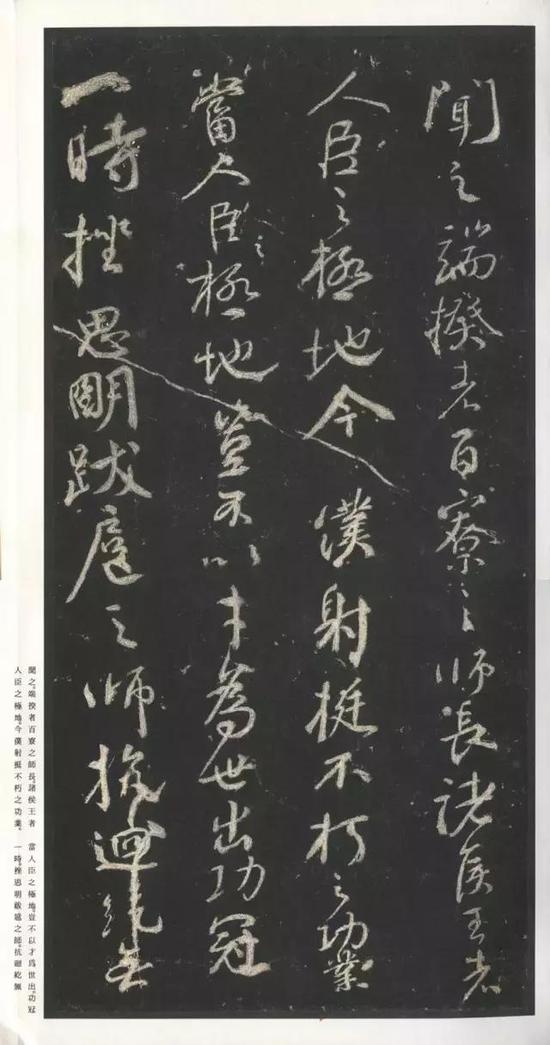 聞之端揆者百寮之師長諸侯王者
人臣之極地今僕射挺不朽之功業
當人臣之極地豈不以才為世出功冠
一時挫思明跋扈之師抗迴紇無
聞之。端揆者百寮之師長。諸侯王者
人臣之極地。今僕射挺不朽之功業。
當人臣之極地。豈不以才爲世出。功冠
一時。挫思明跋扈之師。抗迴紇無